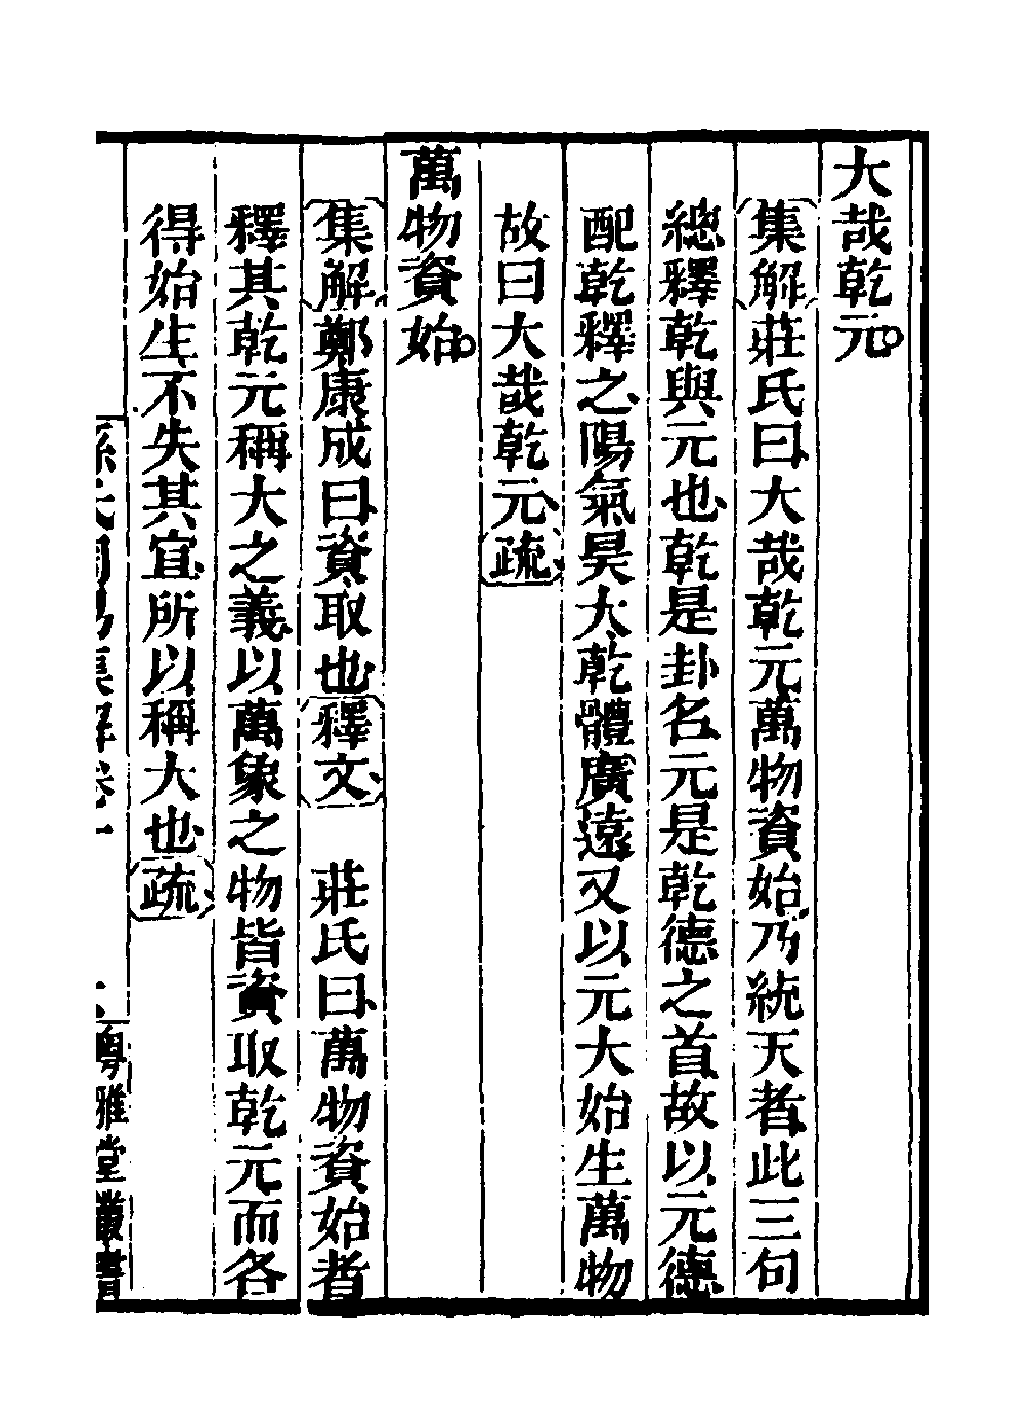 大哉乾元。
集解莊氏曰大哉乾元萬物資始乃統天者此三句
總釋乾與元也乾是卦名元是乾德之首故以元德
配乾釋之陽氣昊大乾體廣遠又以元大始生萬物
故曰大哉乾元疏
萬物資始。
集解鄭康成曰資取也釋文　莊氏曰萬物資始者
釋其乾元稱大之義以萬象之物皆資取乾元而各
得始生不失其宜所以稱大也疏
孫氏周易集解卷一
粵雅堂叢書